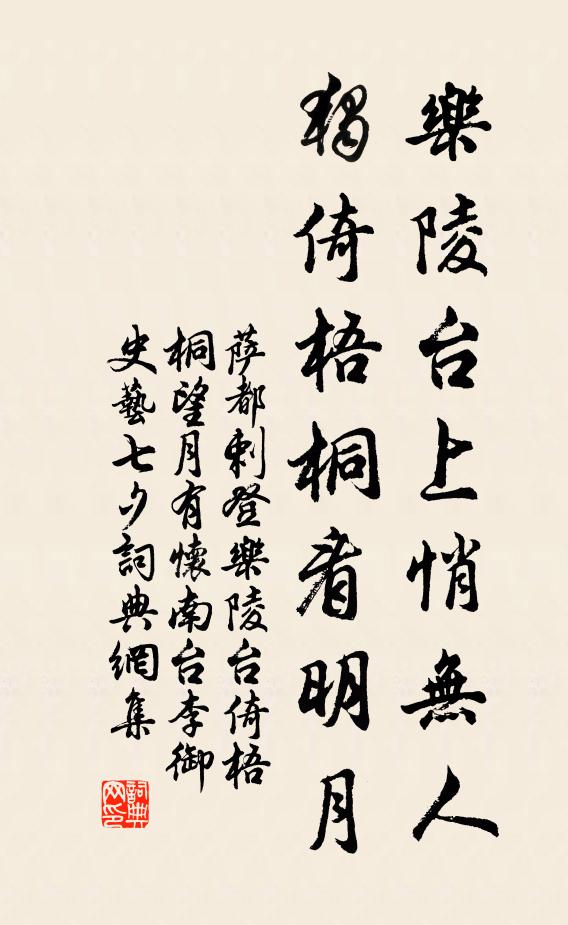 樂陵台上悄無人
獨倚梧桐看明月
萨都剌登樂陵台倚梧
桐望月有懷南台李御
史藝七夕詞典網集
詞典
网印